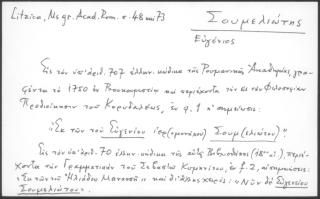 Litzica, Ms gr. Acad. Rom. σ. 48 και 73
Σουμελιώτης
Εὐγένιος
Εἰς τὸν ὑπ' ἀριθ. 707 ἑλλην. κώδικα τῆς Ρουμανικῆς Ἀκαδημίας, γρα-
φέντα τὸ 1750 ἐν Βουκουρεστίῳ καὶ περιέχοντα τὴν εἰς τὴν Φιλοσοφίαν
τοῦ Κορυδαλέως, ἐν φ. 1 σημείωσις:
"Ἐκ τῶν τοῦ Εὐγενίου ἱερ(ομονάχου) Σουμ(ελιώτου)".
Εἰς τὸν ὑπ' ἀριθ. 70 ἑλλην. κώδικα τῆς αὐτῆς Βιβλιοθήκης (18ου αἰ.), περιέ-
χοντα τὴν Γραμματικὴν τοῦ Σεβαστοῦ Κυμινήτου, ἐν φ. 2, αἱ σημειώσεις:
"Ἐκ τῶν τοῦ Ἠλιάδου Μανασσῆ" καὶ δι' ἄλλης χειρός: "Νῦν δὲ Εὐγενίου
Σουμελιώτου".